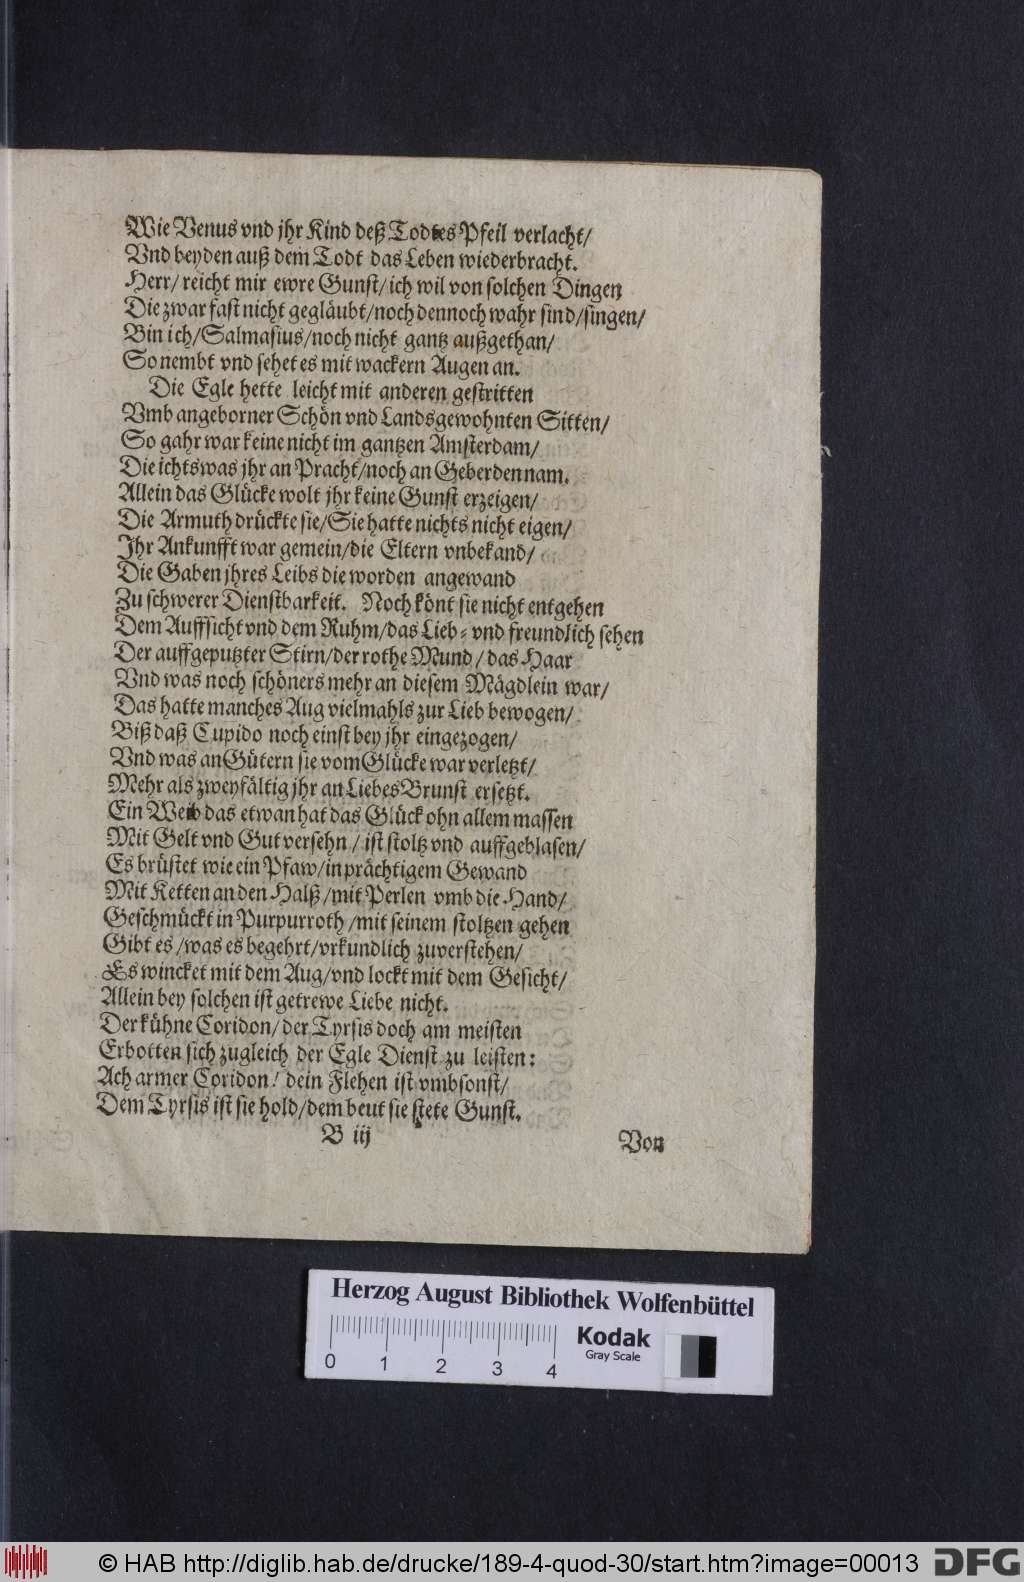 Wie Venus vnd jhr Kind deß Todtes Pfeil verlacht/
Vnd beyden auß dem Todt das Leben wiederbracht.
Herr/ reicht mir ewre Gunst/ ich wil von solchen Dingen
Die zwar fast nicht gegläubt/ noch dennoch wahr sind/ singen/
Bin ich/ Salmasius/ noch nicht gantz außgethan/
So nembt vnd sehet es mit wackern Augen an.
Die Egle hette leicht mit anderen gestritten
Vmb angeborner Schön vnd Landsgewohnten Sitten/
So gahr war keine nicht im gantzen Amsterdam/
Die ichtswas jhr an Pracht/ noch an Geberden nam.
Allein das Glücke wolt jhr keine Gunst erzeigen/
Die Armuth drückte sie/ Sie hatte nichts nicht eigen/
Ihr Ankunfft war gemein/ die Eltern vnbekand/
Die Gaben jhres Leibs die worden angewand
Zu schwerer Dienstbarkeit. Noch könt sie nicht entgehen
Dem Auffsicht vnd dem Ruhm/ das Lieb- vnd freundlich sehen
Der auffgeputzter Stirn/ der rothe Mund/ das Haar
Vnd was noch schöners mehr an diesem Mägdlein war/
Das hatte manches Aug vielmahls zur Lieb bewogen/
Biß daß Cupido noch einst bey jhr eingezogen/
Vnd was an Gütern sie vom Glücke war verletzt/
Mehr als zweyfältig jhr an Liebes Brunst ersetzt.
Ein Weib das etwan hat das Glück ohn allem massen
Mit Gelt vnd Gut versehn/ ist stoltz vnd auffgeblasen/
Es brüstet wie ein Pfaw/ in prächtigem Gewand
Mit Ketten an den Halß/ mit Perlen vmb die Hand/
Geschmückt in Purpurroth/ mit seinem stoltzen gehen
Gibt es/ was es begehrt/ vrkundlich zuverstehen/
Es wincket mit dem Aug/ vnd lockt mit dem Gesicht/
Allein bey solchen ist getrewe Liebe nicht.
Der kühne Coridon/ der Tyrsis doch am meisten
Erbotten sich zugleich der Egle Dienst zu leisten:
Ach armer Coridon! dein Flehen ist vmbsonst/
Dem Tyrsis ist sie hold/ dem beut sie stete Gunst.
B iij
Von
Herzog August Bibliothek Wolfenbüttel
Kodak
Gray Scale
0 1 2 3 4
© HAB http://diglib.hab.de/drucke/189-4-quod-30/start.htm?image=00013
DFG